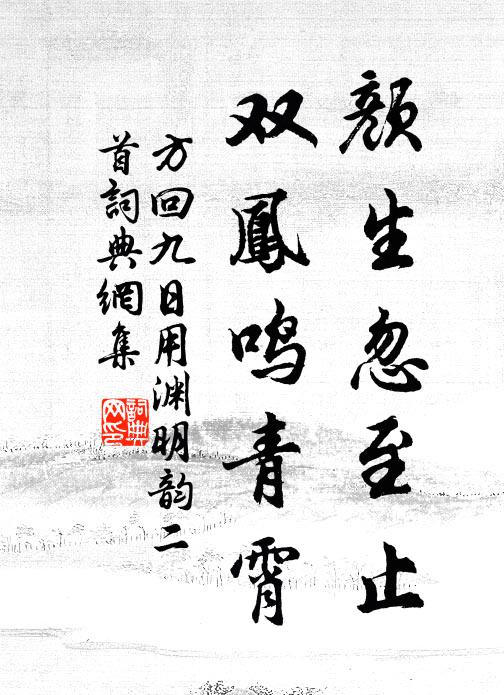 颜生忽至止
双鳳鸣青霄
方回九日用渊明韵二
首詞典網集
詞典网印